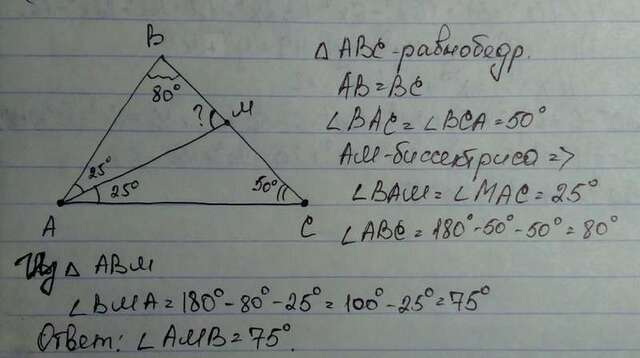 B
80°
?
M
25°
25°
50°
A
C
△ ABC-равнобедр.
AB=BC
∠BAC=∠BCA=50°
AM-биссектриса=>
∠BAM=∠MAC=25°
∠ABC=180°-50°-50°=80°
Из △ ABM
∠BMA=180°-80°-25°=100°-25°=75°
Ответ: ∠AMB=75°.